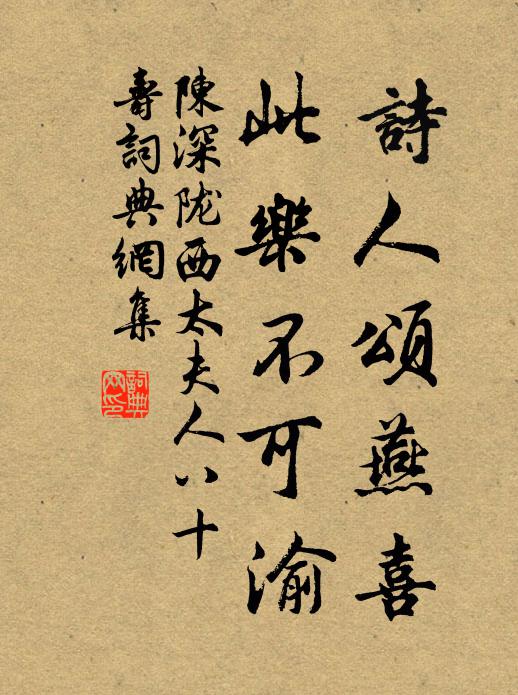 詩人頌燕喜
此樂不可渝
陳深陇西太夫人八十
壽詞典網集
詞典網印